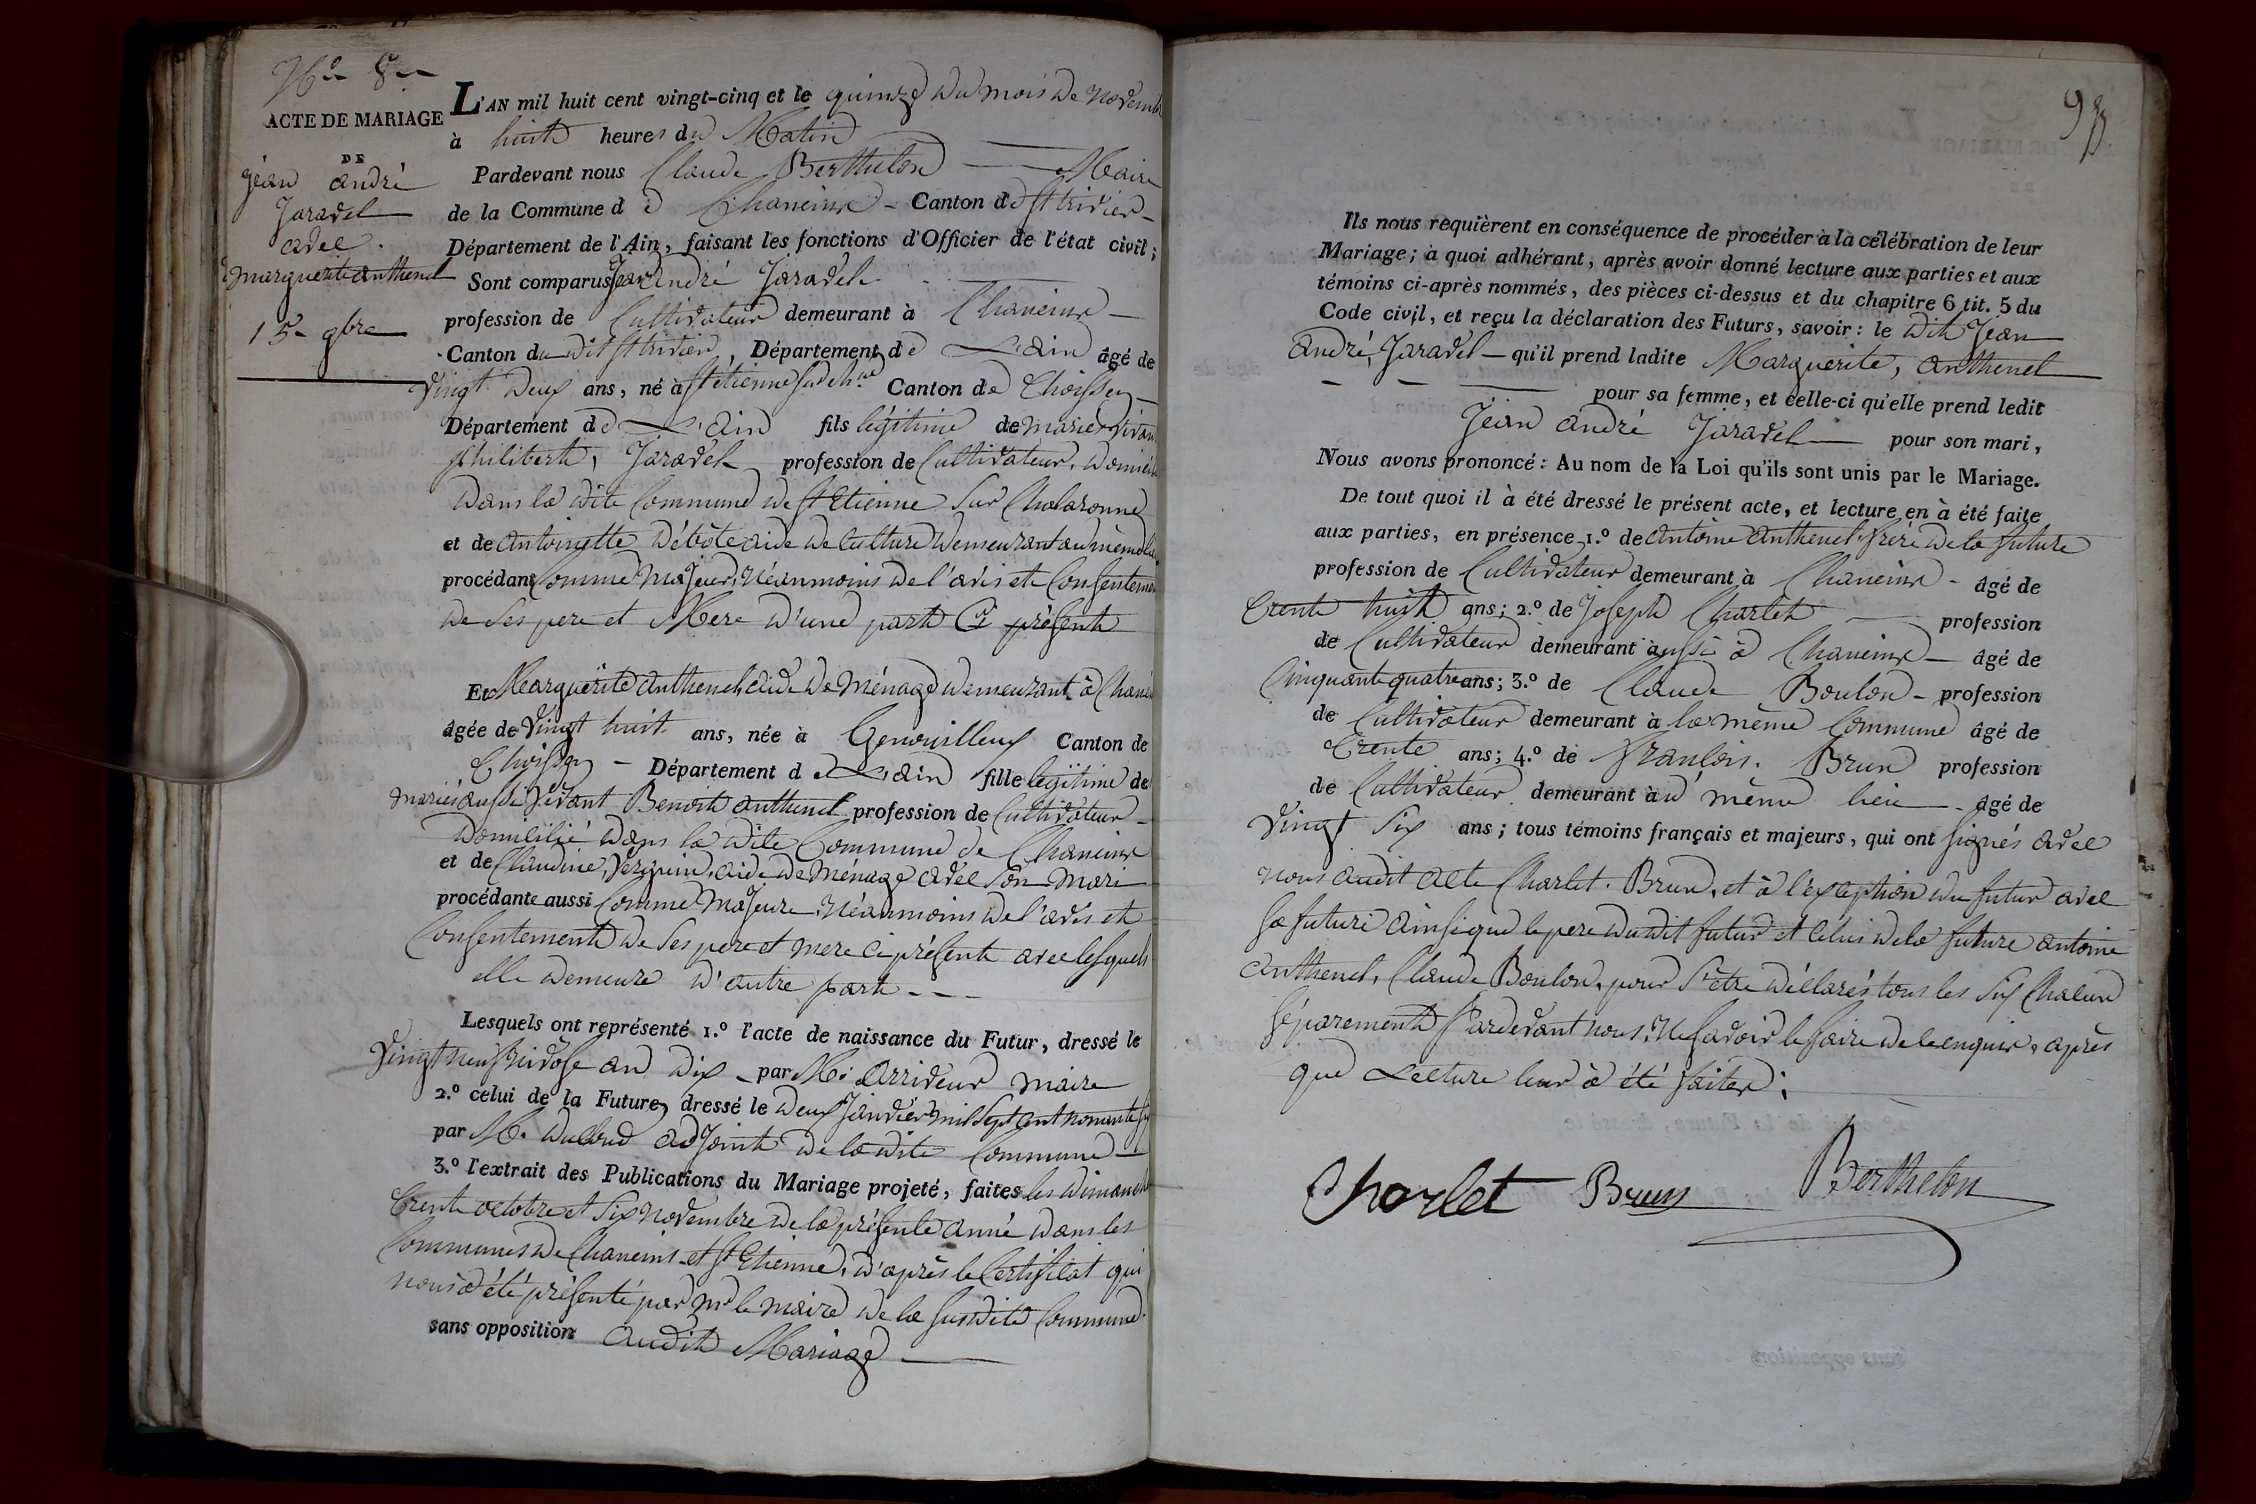 No 8
ACTE DE MARIAGE
DE
jéan andré
Jaravel
avec.
marguerite anthenel
15 9bre
L'AN mil huit cent vingt-cinq et le quinze du mois de novemb
à huit heures du Matin
Pardevant nous Claude Berthelon Maire
de la Commune de Chaneins - Canton de St trivier -
Département de l'Ain, faisant les fonctions d'Officier de l'état civil;
Sont comparus Jean André Jaravel
profession de Cultivateur demeurant à Chaneins -
Canton du dit St trivier, Département de L'ain âgé de
Vingt Deux ans, né à St etienne sur ch.ne Canton de Thoissey -
Département de L'ain fils légitime de mariés vivan
philibert, Jaravel profession de Cultivateur, Domicil
Dans la dite Commune de St Etienne Sur Chalaronne
et de antoinette Débôte aide de Culture demeurant au même lieu
procédant Comme Majeur, Néanmoins de l'avis et Consenteme
de Ses pere et Mere D'une part Ci présent
Et Marguerite anthenel, aide de Ménage demeurant à Chane
âgée de Vingt huit ans, née à Genouilleux Canton de
Thoissey - Département de L'ain fille legitime de
mariés aussi Vivant Benoit anthenel profession de Cultivateur -
Domicilié dans la dite Commune de Chaneins
et de Claudine, Verguin, aide de Ménage avec Son Mari
procédante aussi Comme Majeure, Néanmoins de l'avis et
Consentement de Ses pere et mere ci présent avec lesquels
elle demeure D'autre part - - -
Lesquels ont représenté 1.º l'acte de naissance du Futur, dressé le
Vingt neuf nivôse an Dix - par M. Arriveur maire
2.º celui de la Future, dressé le Deux Janvier mil Sept cent nonante six
par M. Ducloud adjoint de la dite Commune
3.º l'extrait des Publications du Mariage projeté, faites les dimanch
trente octobre et Six novembre de la présente année dans les
Communes de Chaneins et St Etienne, D'après le Certificat qui
nous à été présenté par Mr le maire de la susdite Commune.
sans opposition audit Mariage
98
Ils nous requièrent en conséquence de procéder à la célébration de leur
Mariage; à quoi adhérant, après avoir donné lecture aux parties et aux
témoins ci-après nommés, des pièces ci-dessus et du chapitre 6 tit. 5 du
Code civil, et reçu la déclaration des Futurs, savoir: le dit Jean
André, Jaravel - qu'il prend ladite Marguerite, anthenel
pour sa femme, et celle-ci qu'elle prend ledit
Jéan André Jaravel pour son mari,
Nous avons prononcé: Au nom de la Loi qu'ils sont unis par le Mariage.
De tout quoi il à été dressé le présent acte, et lecture en à été faite
aux parties, en présence 1.º de antoine anthenel frère de la future
profession de Cultivateur demeurant à Chaneins - âgé de
trente huit ans; 2.º de Joseph Charlet profession
de Cultivateur demeurant aussi à Chaneins - âgé de
Cinquante quatre ans; 3.º de Claude Boulon - profession
de Cultivateur demeurant à la même Commune âgé de
trente ans; 4.º de François. Brun profession
de Cultivateur demeurant au même lieu - âgé de
Vingt Six ans; tous témoins français et majeurs, qui ont signés avec
nous audit acte Charlet. Brun, et à l'exception du futur avec
la future ainsi que le pere du dit futur et celui de la future antoine
anthenel, Claude Boulon, pour S'être déclarés tous les Six Chacun
Séparement Pardevant nous, Ne Savoir le faire de ce enquis, après
que Lecture leur à été faite;
Charlet Brun Berthelon